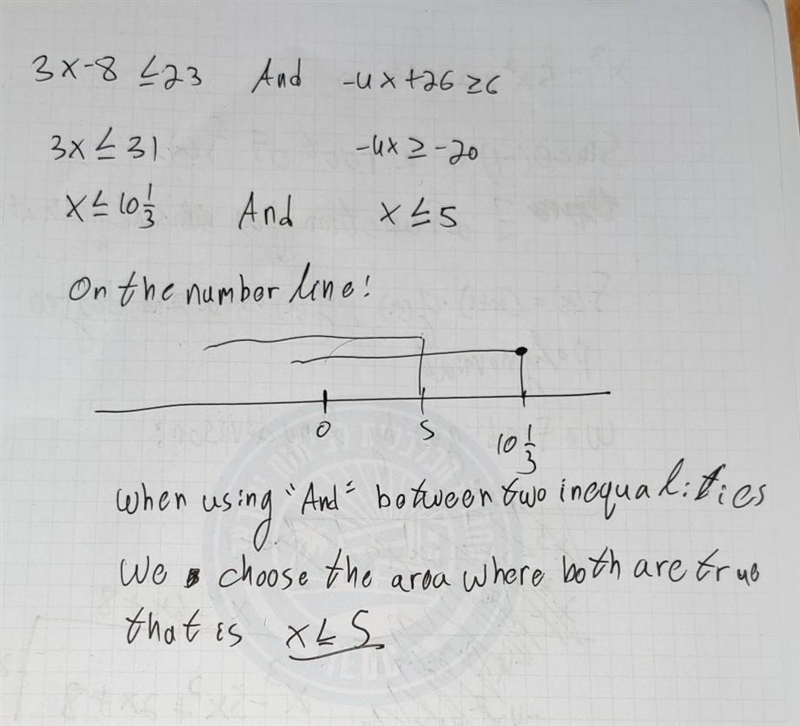 3x-8 ≤23 And -4x+26 ≥6
3x ≤ 31 -4x ≥ -20
x ≤ 10 1/3 And x ≤ 5
On the number line!
0 5 10 1/3
When using "And" between two inequalities
We choose the area where both are true
that is x ≤ 5